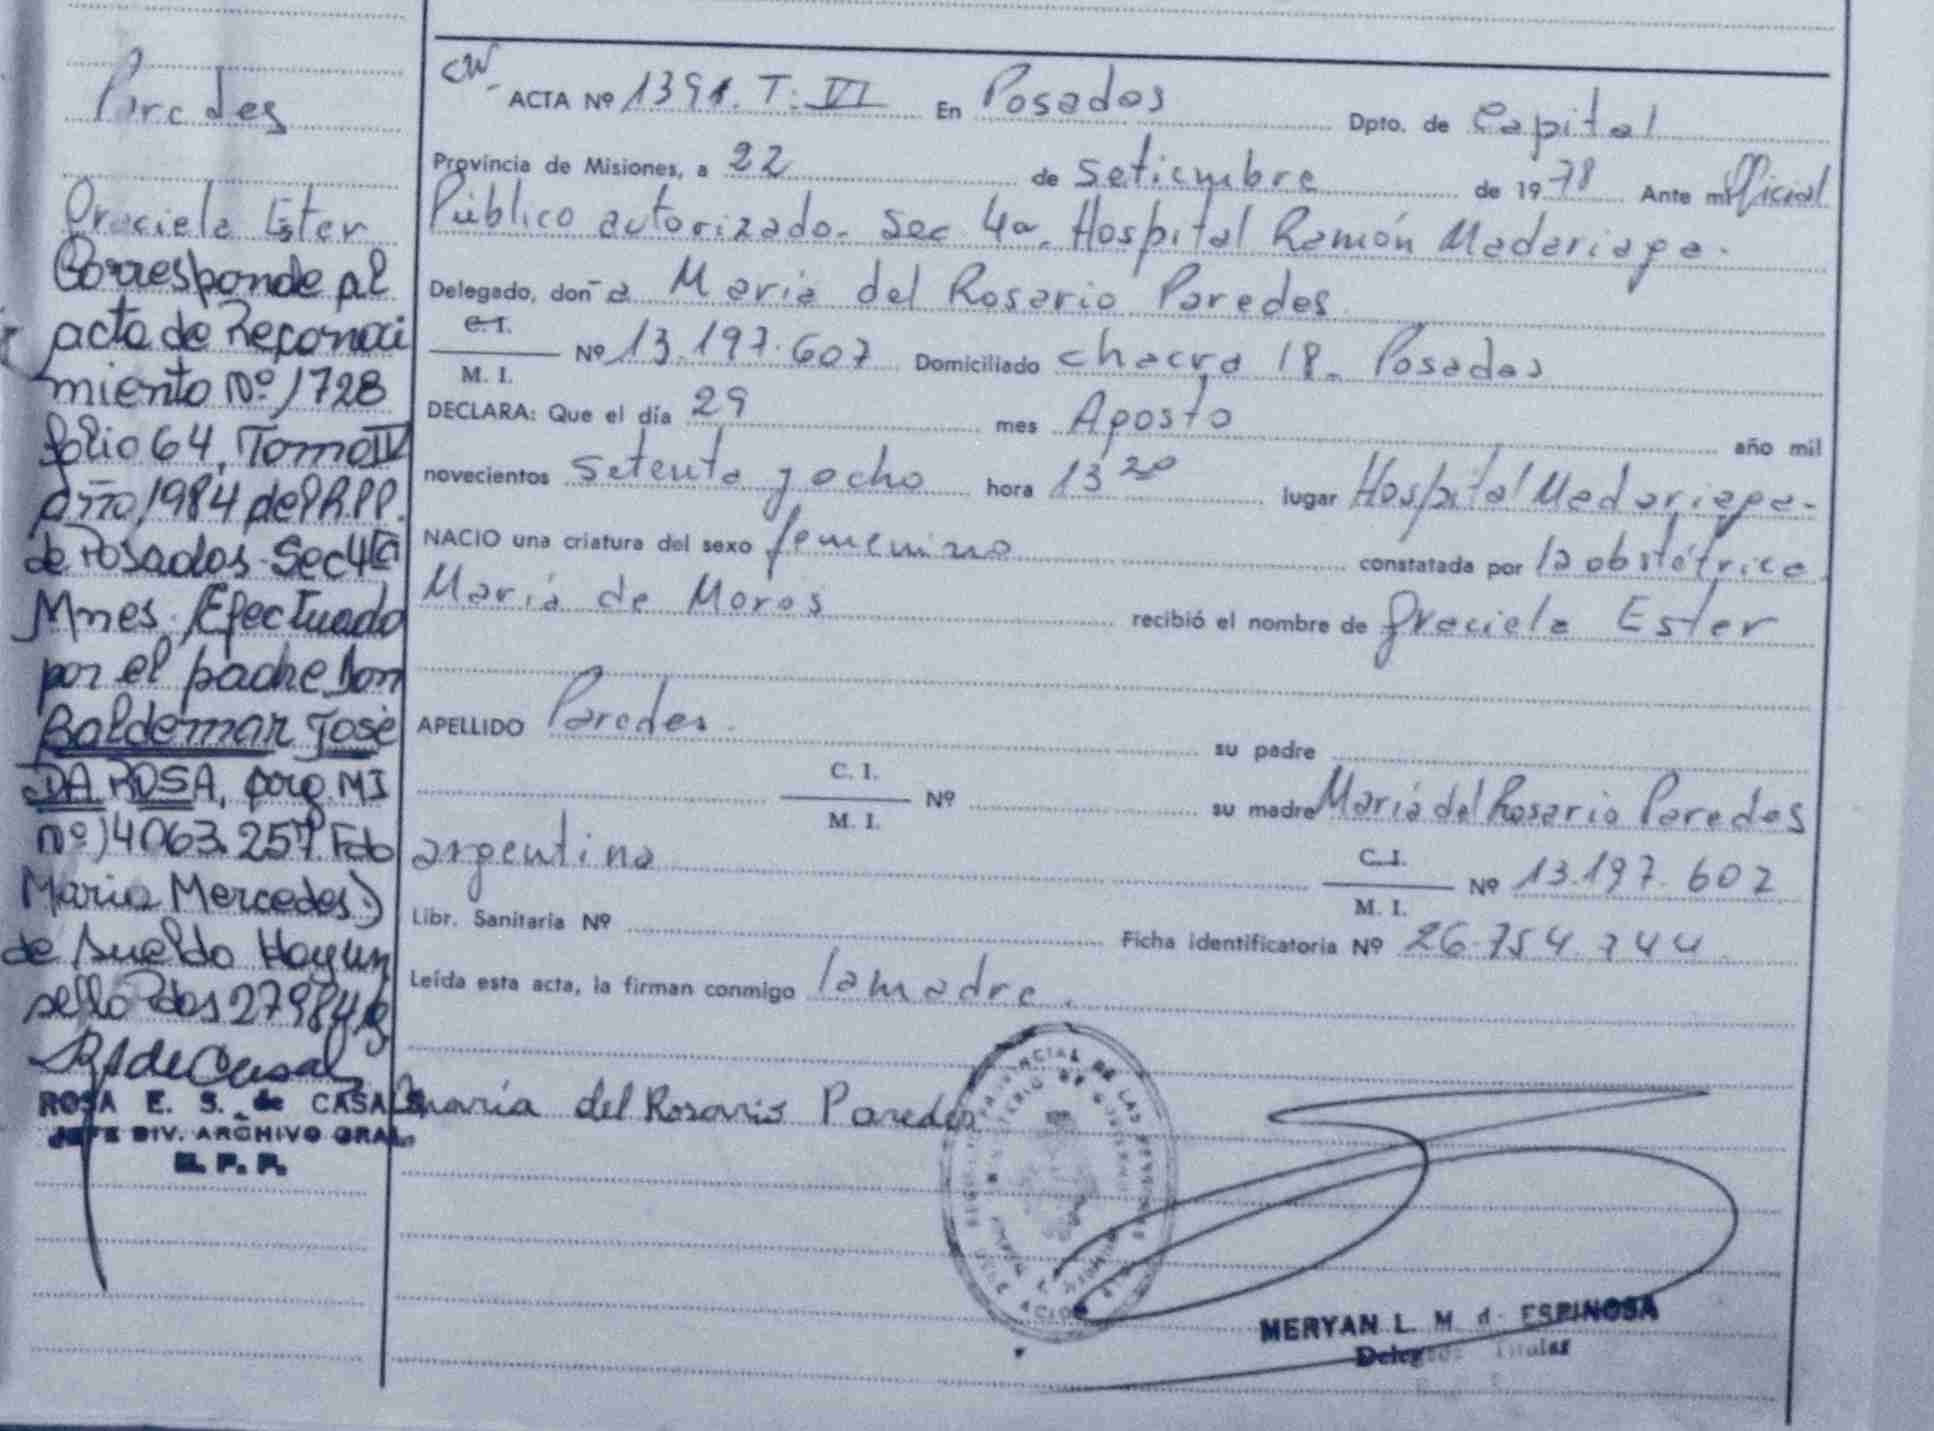 Paredes
Graciela Ester
Corresponde al
acta de Reconoci
miento Nº 1728
folio 64, Tomo IV
año 1984 del R.P.P.
de Posadas. Sec 4ta
Mnes. Efectuado
por el padre don
Baldemar José
DA ROSA, arg. MI
Nº 14063.257. Fdo
Maria Mercedes
de Sueldo Hay un
sello Pdas 27984
RSdeCasal
ROSA E. S. de CASAL
JEFE DIV. ARCHIVO GRAL.
R. P. P.
ACTA Nº 1391. T. VI En Posadas Dpto. de Capital
Provincia de Misiones, a 22 de setiembre de 1978 Ante mi Oficial
Público autorizado. Sec 4a. Hospital Ramón Madariaga.
Delegado, don-a Maria del Rosario Paredes
C. I.
M. I. Nº 13.197.607 Domiciliado chacra 18. Posadas
DECLARA: Que el día 29 mes Agosto año mil
novecientos setenta y ocho hora 13 20 lugar Hospital Madariaga.
NACIO una criatura del sexo femenino constatada por la obstétrica
María de Moros recibió el nombre de Graciela Ester
APELLIDO Paredes. su padre
C. I.
M. I. Nº su madre María del Rosario Paredes
argentina C. I.
M. I. Nº 13.197.607
Libr. Sanitaria Nº Ficha identificatoria Nº 26.754.744
Leída esta acta, la firman conmigo la madre.
María del Rosario Paredes
MERYAN L. M. d. ESPINOSA
Titular